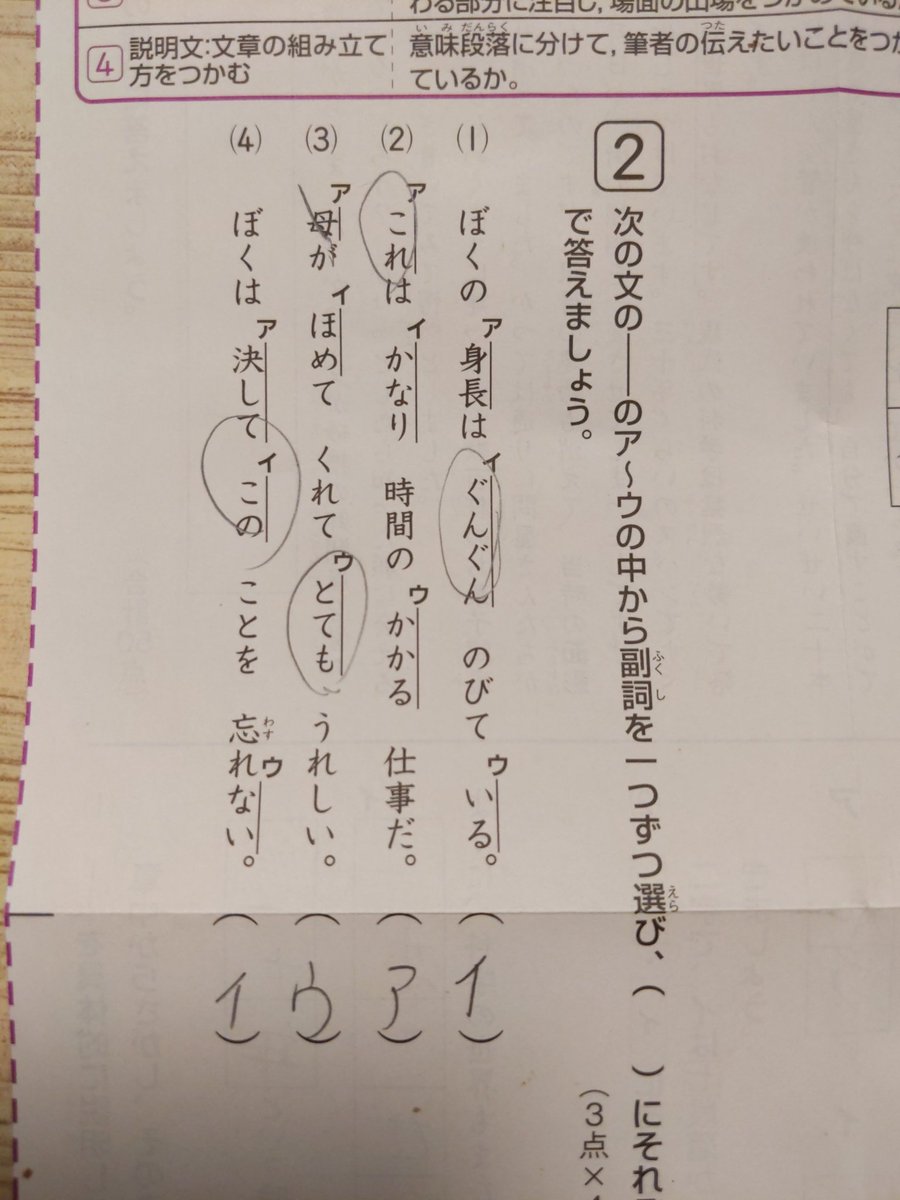 わる部分に注目し，場面の山場を
4 説明文：文章の組み立て方をつかむ
意味段落に分けて，筆者の伝えたいことをつか
ているか。
2 次の文の――のア～ウの中から副詞を一つずつ選び、（ ）にそれ
で答えましょう。
（3点×
(1) ぼくの ア身長は イぐんぐん のびて ウいる。（イ）
(2) アこれは イかなり 時間の ウかかる 仕事だ。（ア）
(3) ア母が イほめて くれて ウとても うれしい。（ウ）
(4) ぼくは ア決して イこの ことを 忘れウない。（イ）